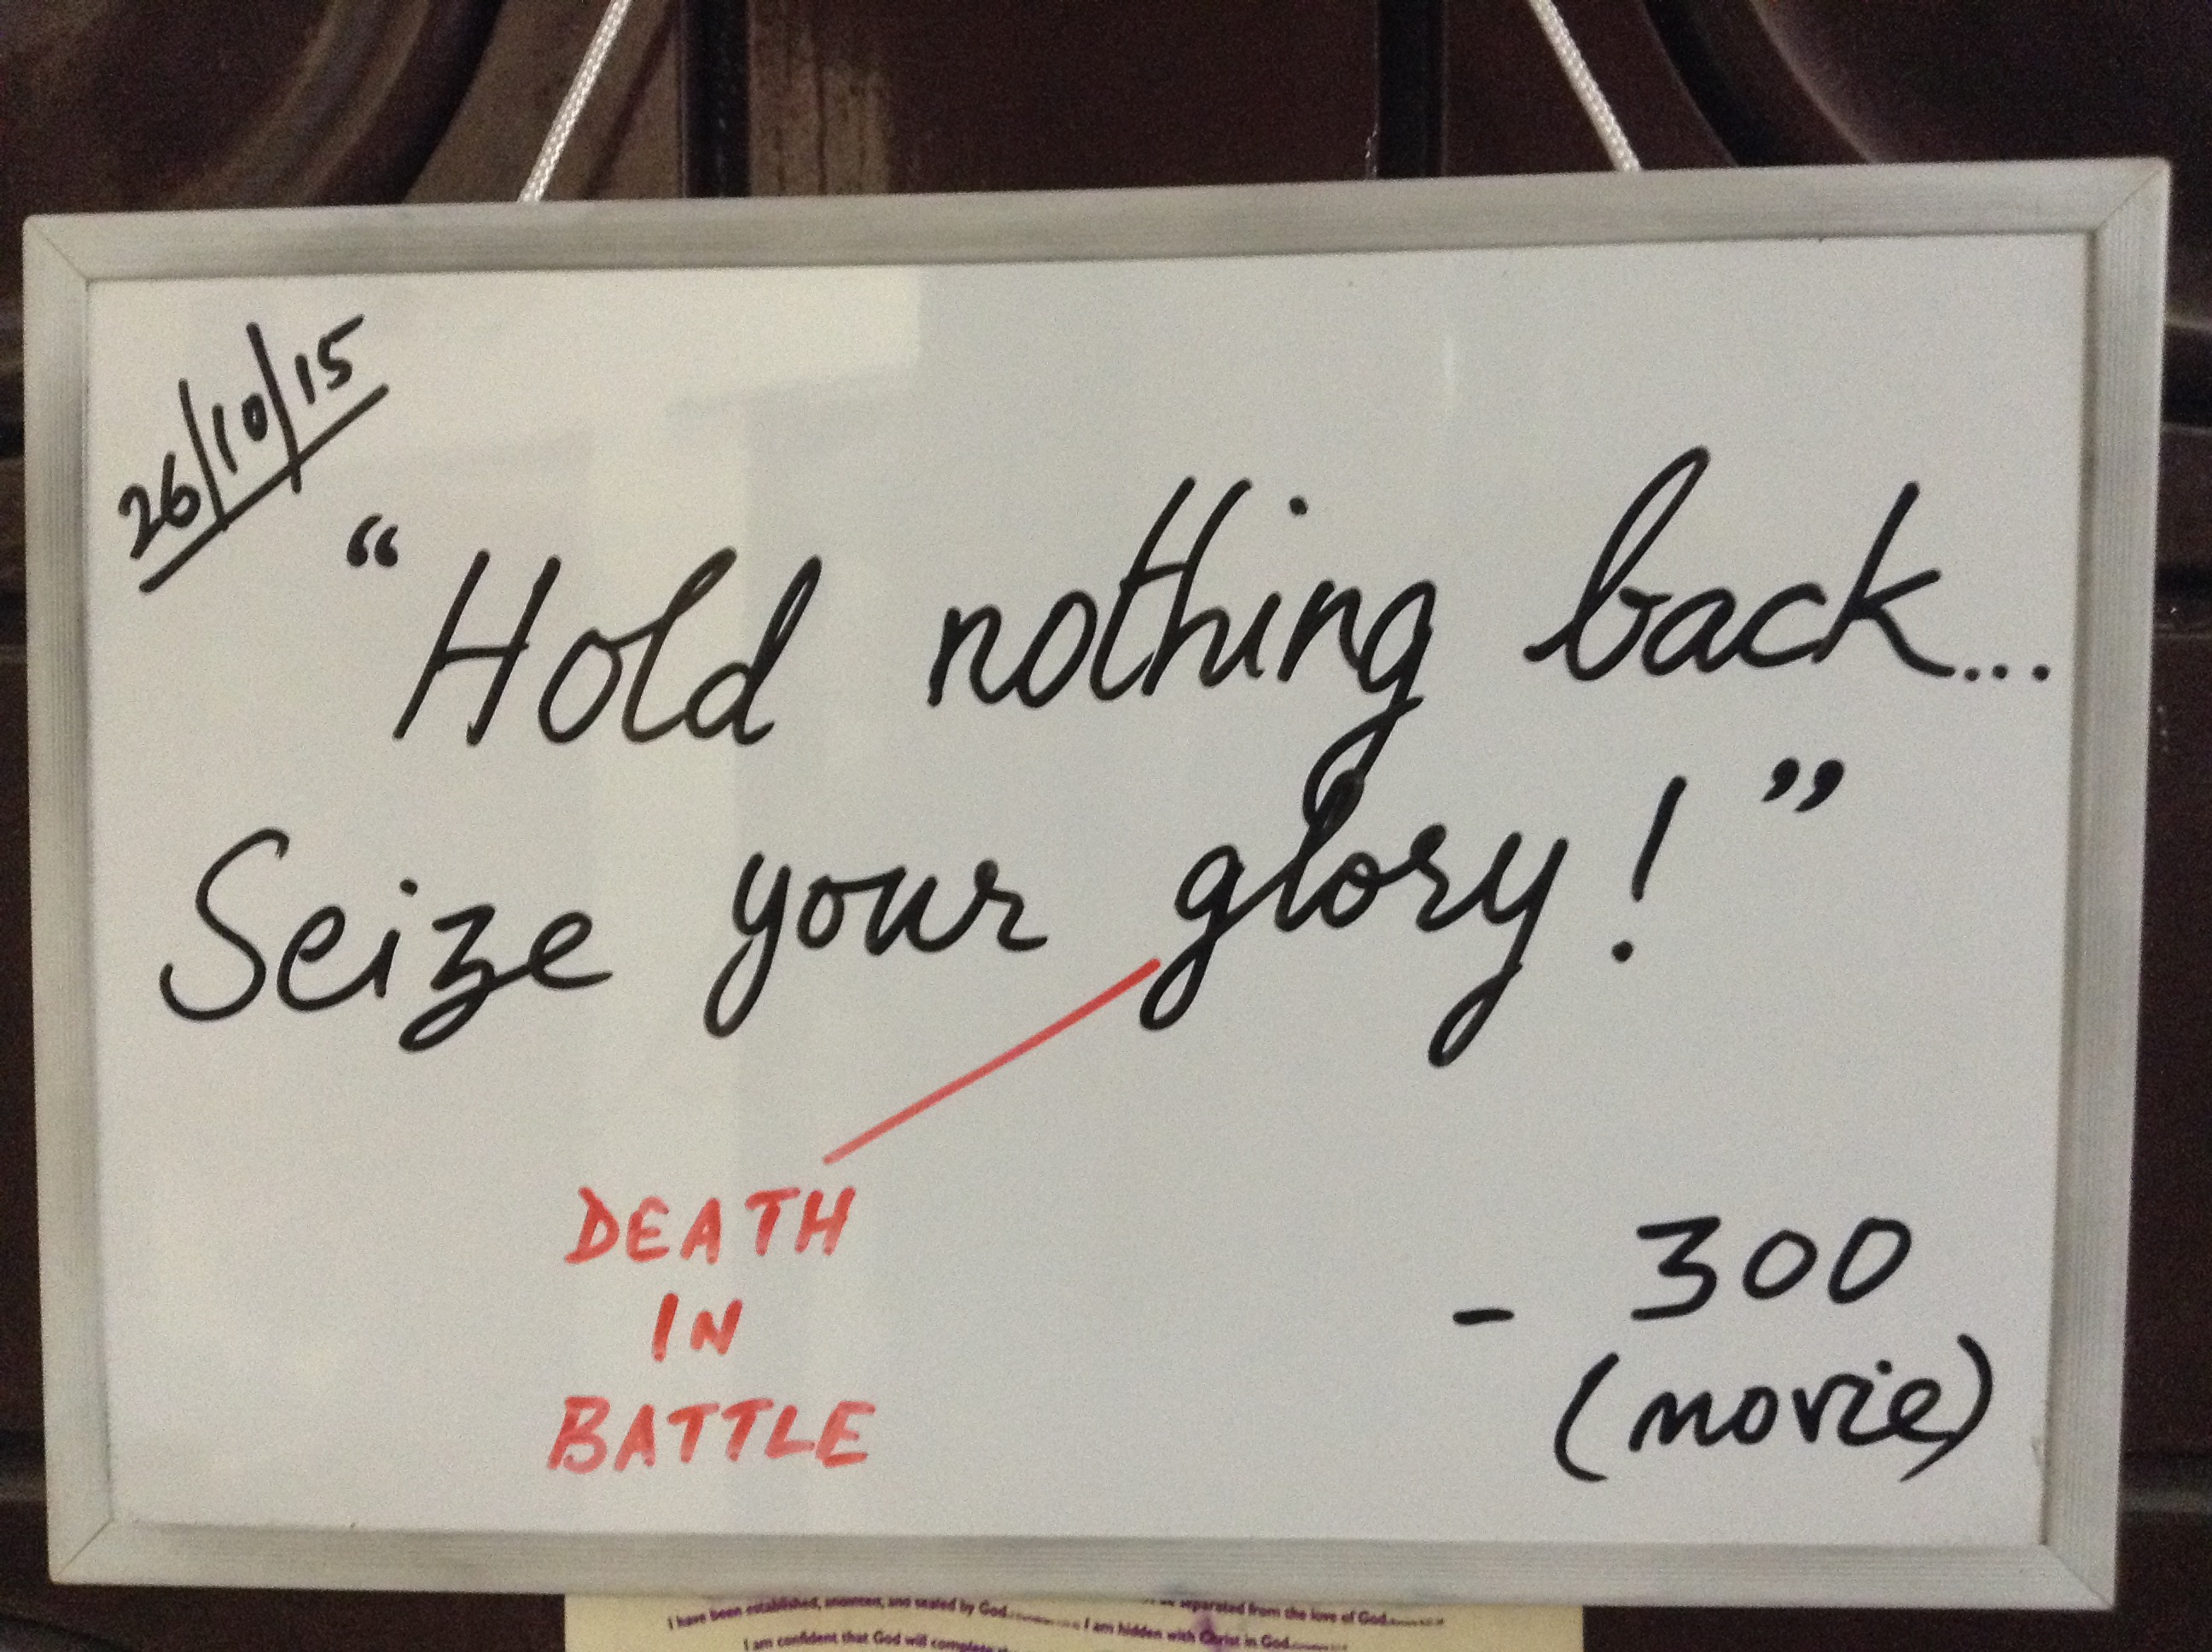 26/10/15
“Hold nothing back...
Seize your glory!”
DEATH
IN
BATTLE
- 300
(movie)
I have been established, anointed, and sealed by God. separated from the love of God.
I am hidden with Christ in God.
I am confident that God will complete